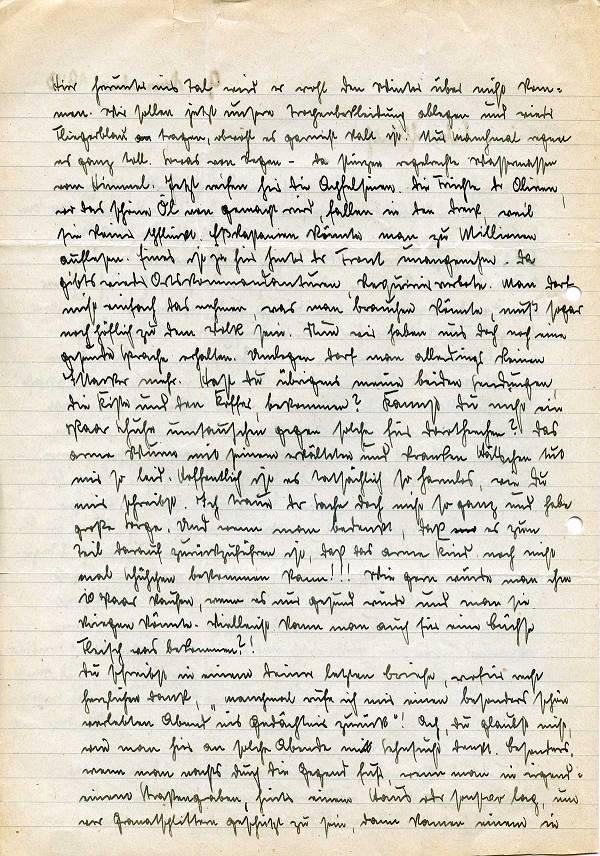 Hier herunter ins Tal, wird er wohl den Winter über nicht kom-
men. Wir sollen jetzt unsere Tropenbekleidung ablegen und wieder
Fliegerblau an tragen, obwohl es garnicht kalt ist. Nur manchmal regnet
es ganz toll. Sowas von Regen - da stürzen regelrechte Wassermassen
vom Himmel. Jetzt reifen hier die Apfelsinen. Die Früchte der Oliven,
wo das schöne Öl von gemacht wird, fallen in den Dreck, weil
sie keiner pflückt. Esskastanien könnte man zu Millionen
auflesen. Eines ist ja hier hinter der Front unangenehm. Da
gibts wieder Ortskommandanturen Requirierverbote. Man darf
nicht einfach das nehmen, was man brauchen könnte, muß sogar
noch höflich zu dem Volk sein. Nun wir haben uns doch noch eine
gesunde Sprache erhalten. Umlegen darf man allerdings keinen
mehr. Hast Du übrigens meine beiden Sendungen,
die Kiste und den Koffer, bekommen? Kannst Du nicht ein
Paar Schuhe umtauschen gegen solche für Dorthchen? Das
arme Wurm mit seinen erkälteten und kranken tut
mir so leid. Hoffentlich ist es tatsächlich so harmlos, wie Du
mir schreibst. Ich traue der Sache doch nicht so ganz und habe
große Sorge. Und wenn man bedenkt, daß es zum
Teil darauf zurückzuführen ist, daß das arme Kind, noch nicht
mal Schühchen bekommen kann!!! Wie gern würde man ihm
10 Paar kaufen, wenn es nur gesund würde und man sie
kriegen könnte. Vielleicht kann man auch für eine Büchse
Fleisch was bekommen?!
Du schreibst in einem Deiner letzten Briefe, wofür recht
herzlichen Dank, "manchmal rufe ich mir einen besonders schön
verlebten Abend ins Gedächtnis zurück"! Ach, du glaubst nicht,
wie man hier an solche Abende mit Sehnsucht denkt. Besonders,
wenn man nachts durch die Gegend fuhr, wenn man in irgend-
einem Straßengraben, hinter einem Haus oder sonstwo lag, um
vor Granatsplittern geschützt zu sein, dann kamen einem in